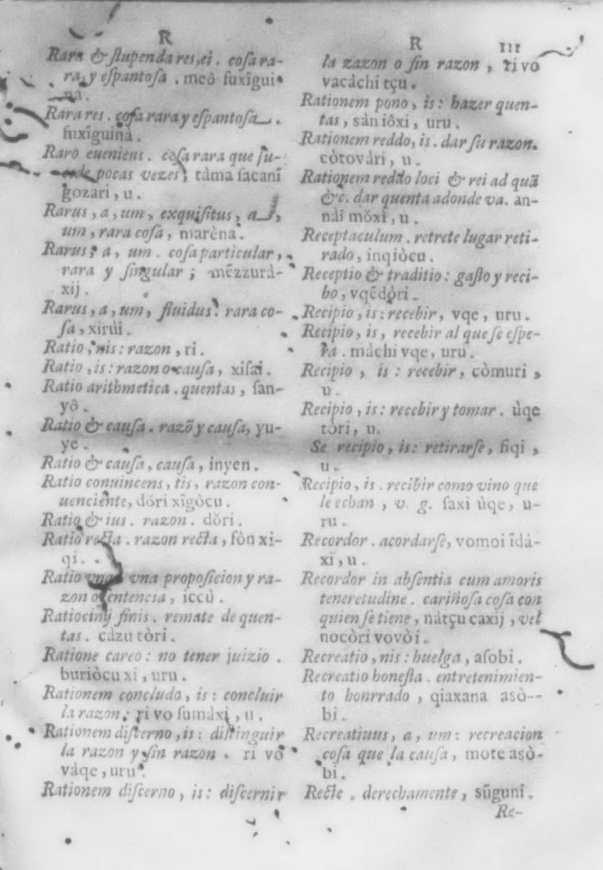 R
Rara & stupenda res, ei. cosa ra-
ra, y espantosa. meô fuxîgui
na.
Rara res. cosa rara y espantosa.
fuxîguina.
Raro eueniens. cosa rara que su-
cede pocas vezes, tàma sacanî
gozari, u.
Rarus, a, um, exquisitus, a,
um, rara cosa, marèna.
Rarus, a, um. cosa particular,
rara y singular; mêzzurà-
xij.
Rarus, a, um, fluidus. rara co-
sa, xirúi.
Ratio, nis: razon, ri.
Ratio, is: razon o causa, xisai.
Ratio arithmetica. quentas, san-
yô.
Ratio & causa. razõ y causa, yu-
ye.
Ratio & causa, causa, inyen.
Ratio conuincens, tis, razon con-
uenciente, dôri xîgòcu.
Ratio & ius. razon. dôri.
Ratio recta. razon recta, sôn xi-
qi.
Ratio vna vna proposicion y ra-
zon o sentencia, iccù.
Ratiocinij finis. remate de quen-
tas. càzu tòri.
Ratione careo: no tener juizio.
buriòcu xi, uru.
Rationem concludo, is: concluir
la razon: ri vo sumàxi, u.
Rationem discerno, is: distinguir
la razon y sin razon. ri vo
vàqe, uru.
Rationem discerno, is: discernir
R 111
la zazon o sin razon, ri vo
vacàchi tçu.
Rationem pono, is: hazer quen-
tas, sàn iôxi, uru.
Rationem reddo, is. dar su razon.
còtovàri, u.
Rationem reddo loci & rei ad quã
&c. dar quenta adonde va. an-
nâi mòxi, u.
Receptaculum. retrete lugar reti-
rado, inqiòcu.
Receptio & traditio: gasto y reci-
bo, vqêdòri.
Recipio, is: recebir, vqe, uru.
Recipio, is, recebir al que se espe-
ra. màchi vqe, uru.
Recipio, is: recebir, còmuri,
u.
Recipio, is: recebir y tomar. ùqe
tòri, u.
Se recipio, is: retirarse, fiqi,
u.
Recipio, is. recibir como vino que
le echan, v. g. saxi ùqe, u-
ru.
Recordor. acordarse, vomoi îdà-
xi, u.
Recordor in absentia cum amoris
teneretudine. cariñosa cosa con
quien se tiene, nàtçu caxij, vel
nocòri vovòi.
Recreatio, nis: huelga, asobi.
Recreatio honesta. entretenimien-
to honrrado, qiaxana asò-
bi.
Recreatiuus, a, um: recreacion
cosa que la causa, mote asò-
bi.
Recte. derechamente, sũgunî.
Re-